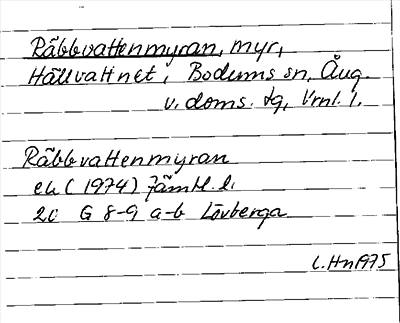 Räbbvattenmyran, myr,
Hällvattnet, Bodums sn, Ång.
v. doms. tg, Vrnl. l.
Räbbvattenmyran
ek (1974) Jämtl. l.
20 G 8-9 a-b Lövberga
L. Hn 1975